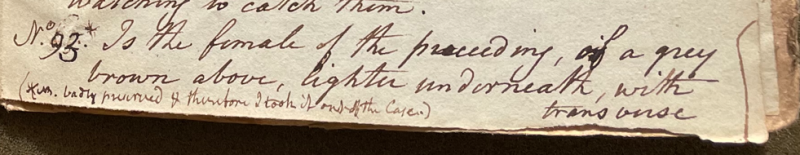 watching to catch them.
No. 93.* Is the female of the preceeding, of a grey
brown above, lighter underneath, with
(*was badly preserved & therefore I took it out of the Case.)
transverse